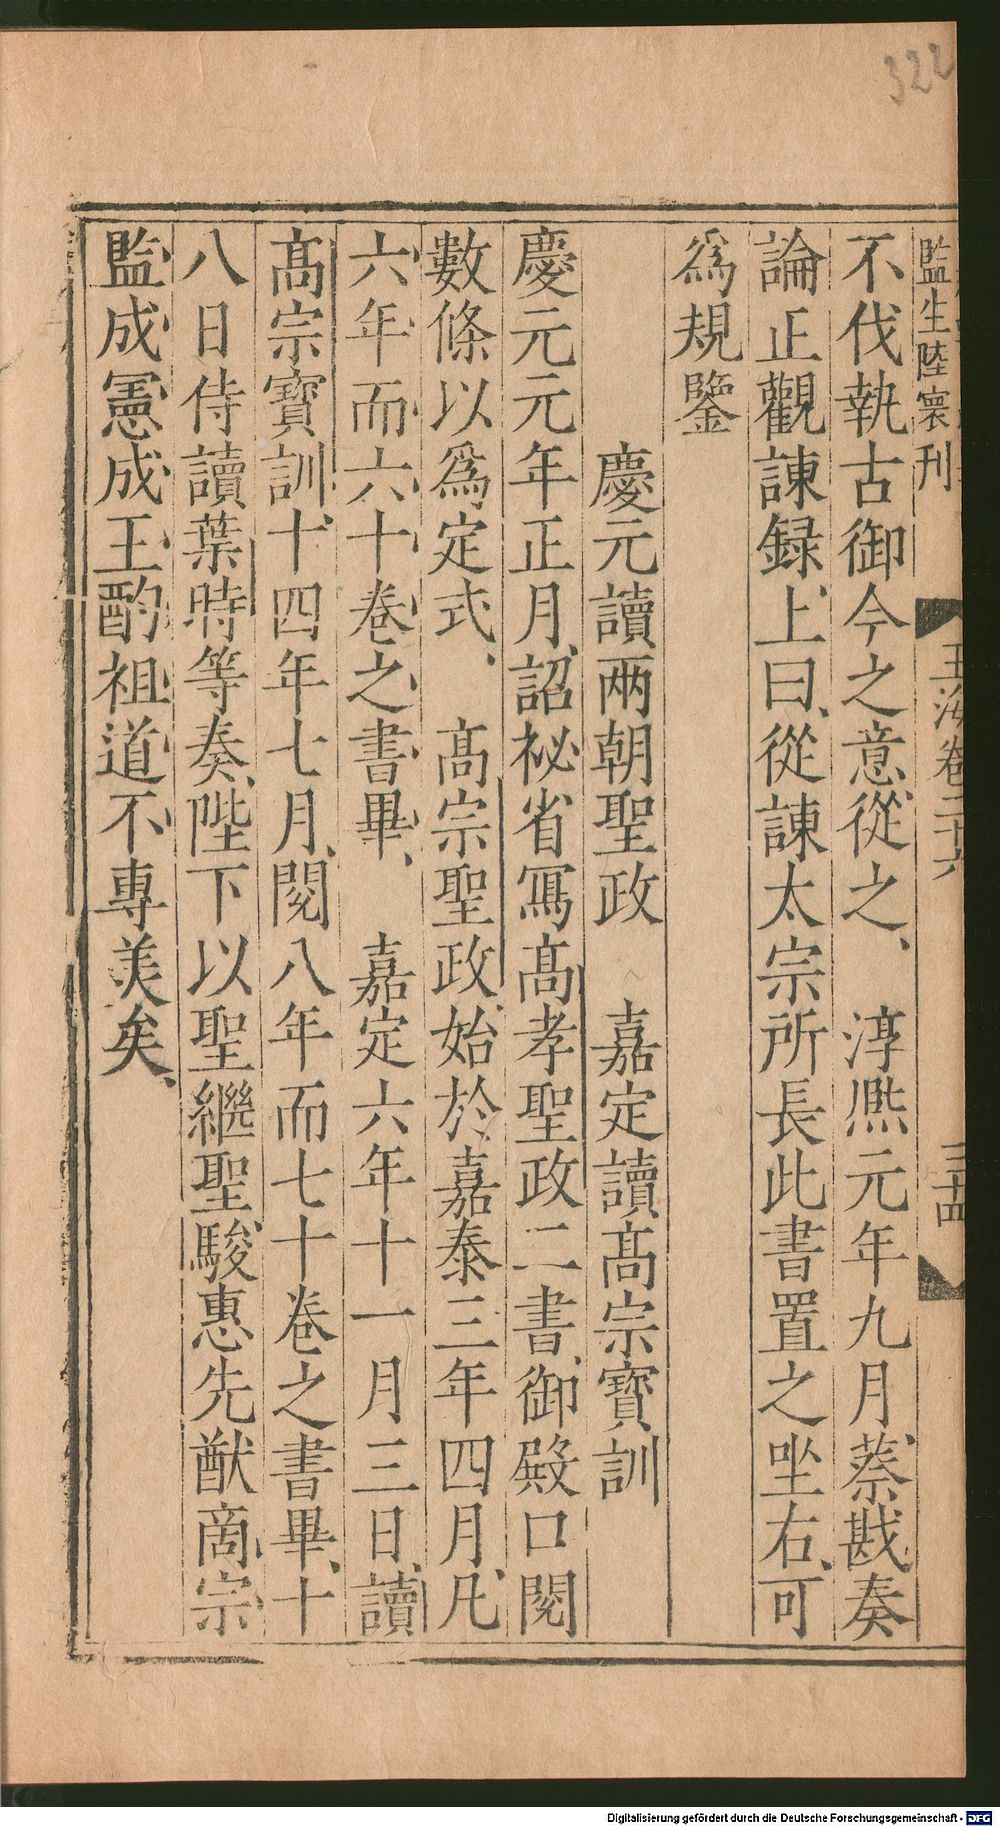 322
監生陸寰刊
玉海卷二十六
三十四
不伐執古御今之意、從之、　淳熈元年九月、蔡戡奏
論正觀諫録、上曰、從諫太宗所長此書置之坐右、可
爲規鑒
慶元讀兩朝聖政　嘉定讀髙宗寳訓
慶元元年正月、詔祕省冩髙孝聖政二書、御殿口閱
數條以爲定式、　髙宗聖政、始於嘉泰三年四月、凡
六年而六十卷之書畢、　嘉定六年十一月三日、讀
髙宗寳訓、十四年七月、閱八年而七十卷之書畢、十
八日侍讀葉時等奏、陛下以聖繼聖、駿惠先猷、商宗
監成憲成王酌祖道不專美矣、
Digitalisierung gefördert durch die Deutsche Forschungsgemeinschaft - DFG